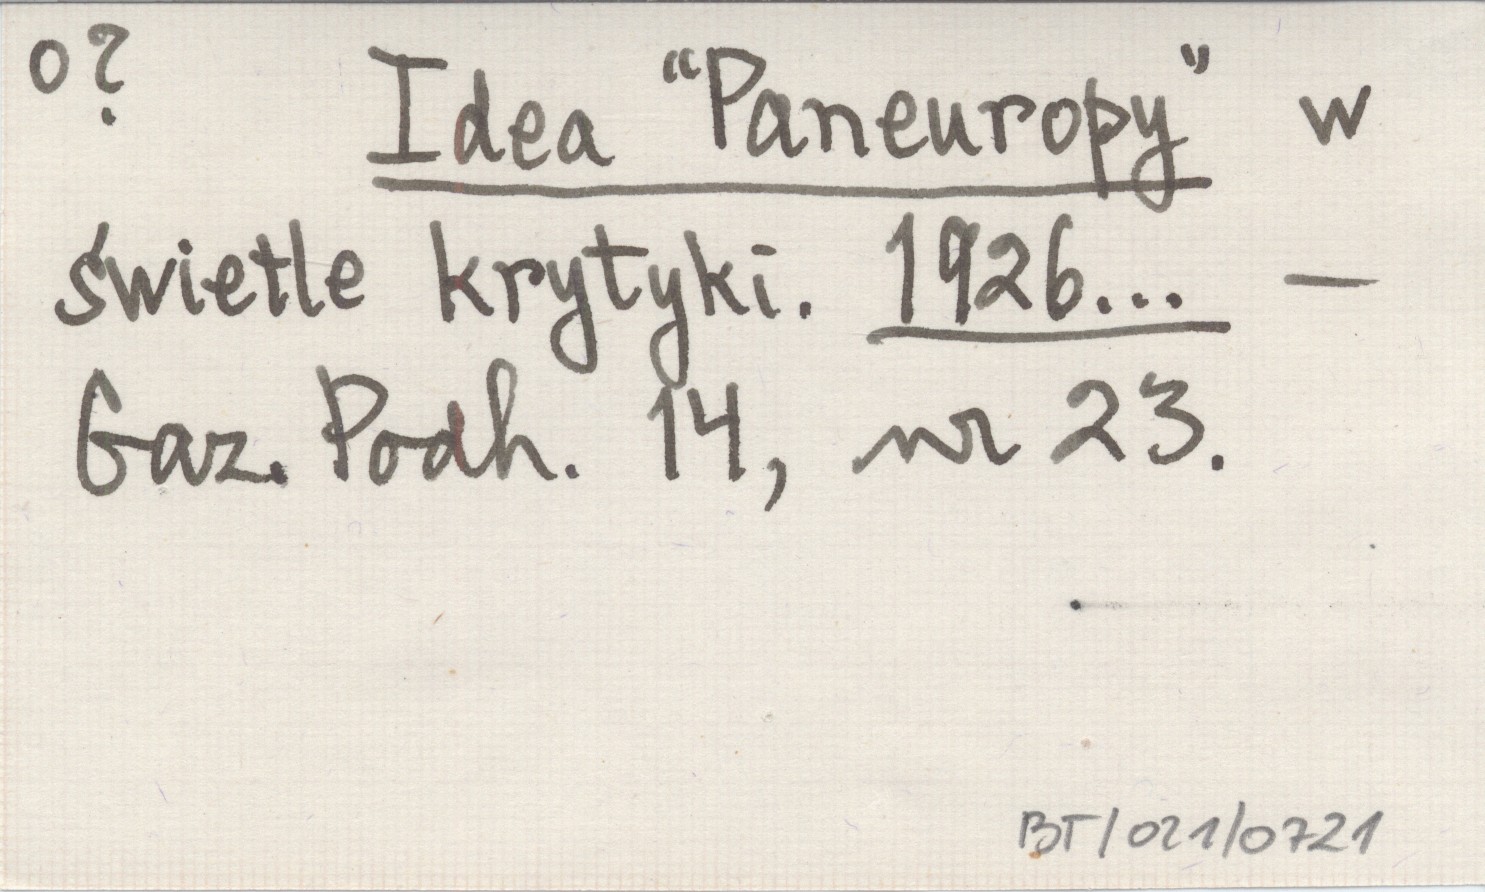 o?
Idea “Paneuropy” w
świetle krytyki. 1926... —
Gaz. Podh. 14, nr 23.
BT/021/0721